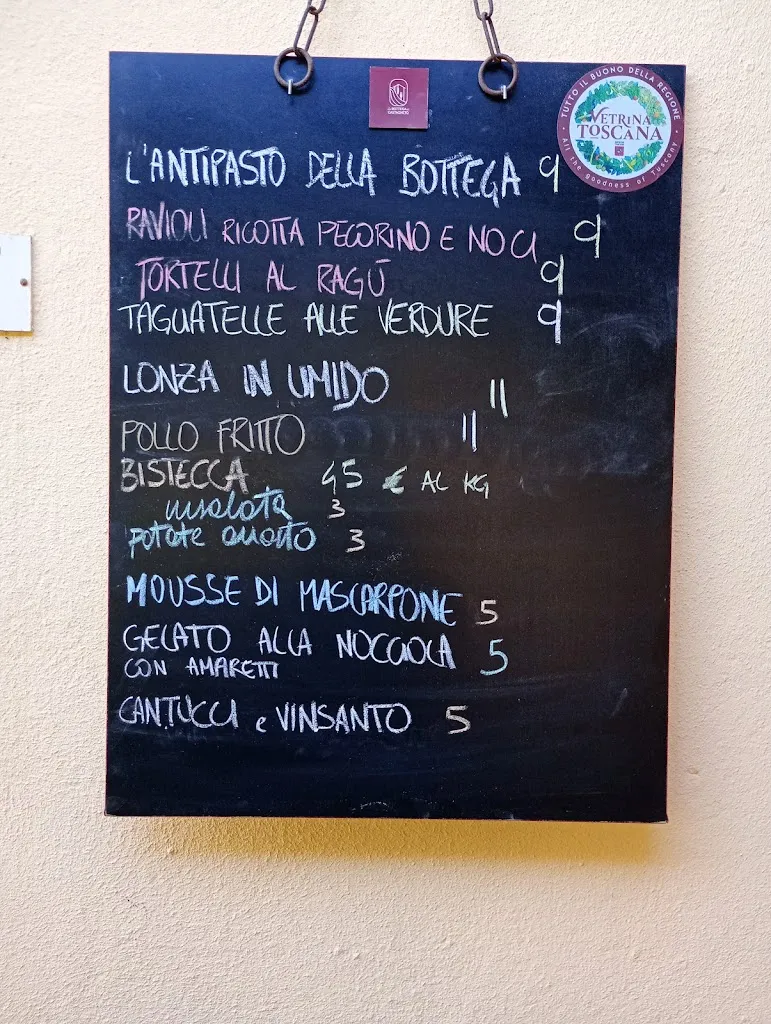 TUTTO IL BUONO DELLA REGIONE
VETRINA
TOSCANA
All the goodness of Tuscany
L'ANTIPASTO DELLA BOTTEGA 9
RAVIOLI RICOTTA PECORINO E NOCI 9
TORTELLI AL RAGÚ 9
TAGLIATELLE ALLE VERDURE 9
LONZA IN UMIDO 11
POLLO FRITTO 11
BISTECCA 45 € AL KG
insalata 3
patate arrosto 3
MOUSSE DI MASCARPONE 5
GELATO ALLA NOCCIOLA 5
CON AMARETTI
CANTUCCI e VINSANTO 5